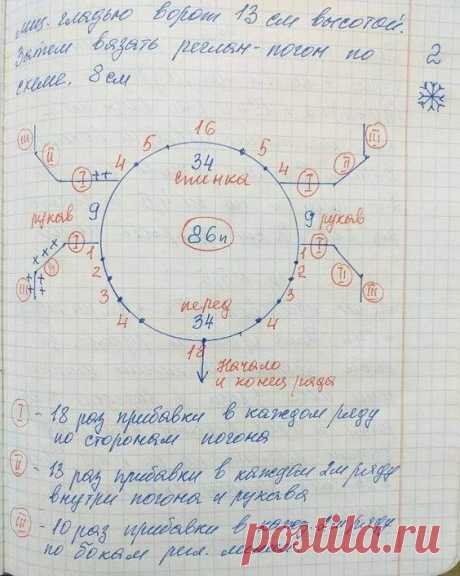 лиц. гладью ворот 13 см высотой.
Затем вязать реглан-погон по
схеме. 8 см
2
16
5 5
4 4
34
спинка
III II I
I II III
рукав 9
9 рукав
86п
I
I
II
III
II
III
1 1
2 2
3 3
4 4
перед
34
18
Начало
и конец ряда
I - 18 раз прибавки в каждом ряду
по сторонам погона
II - 13 раз прибавки в каждом 2м ряду
внутри погона и рукава
III - 10 раз прибавки в кажд. 2м ряду
по бокам рег.
postila.ru